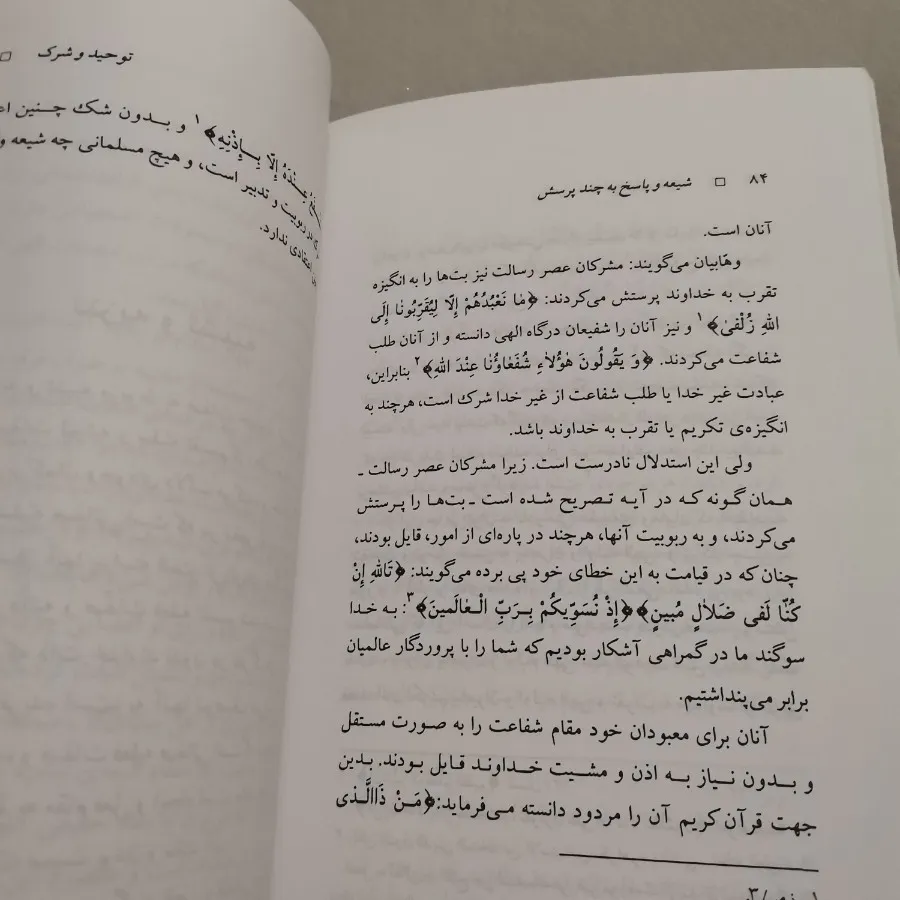 ۸۴ □ شیعه و پاسخ به چند پرسش
آنان است.
وهّابیان می‌گویند: مشرکان عصر رسالت نیز بت‌ها را به انگیزه
تقرب به خداوند پرستش می‌کردند: ﴿مٰا نَعْبُدُهُمْ إِلّا لِیُقَرِّبُونٰا إِلَی
اللهِ زُلْفیٰ﴾۱ و نیز آنان را شفیعان درگاه الهی دانسته و از آنان طلب
شفاعت می‌کردند. ﴿وَ یَقُولُونَ هٰؤُلاٰءِ شُفَعٰاؤُنٰا عِنْدَ اللهِ﴾۲ بنابراین،
عبادت غیر خدا یا طلب شفاعت از غیر خدا شرک است، هرچند به
انگیزه‌ی تکریم یا تقرب به خداوند باشد.
ولی این استدلال نادرست است. زیرا مشرکان عصر رسالت ـ
همان گونه که در آیه تصریح شده است ـ بت‌ها را پرستش
می‌کردند، و به ربوبیت آنها، هرچند در پاره‌ای از امور، قایل بودند،
چنان که در قیامت به این خطای خود پی برده می‌گویند: ﴿تَاللهِ إِنْ
کُنّٰا لَفی ضَلاٰلٍ مُبینٍ﴾﴿إِذْ نُسَوِّیکُمْ بِرَبِّ الْعٰالَمینَ﴾۳: به خدا
سوگند ما در گمراهی آشکار بودیم که شما را با پروردگار عالمیان
برابر می‌پنداشتیم.
آنان برای معبودان خود مقام شفاعت را به صورت مستقل
و بدون نیاز به اذن و مشیت خداوند قایل بودند. بدین
جهت قرآن کریم آن را مردود دانسته می‌فرماید:﴿مَنْ ذَاالَّذی
توحید و شرک □
عِنْدَهُ إِلّا بِإِذْنِهِ﴾۱ و بدون شک چنین
ربوبیت و تدبیر است، و هیچ مسلمانی چه شیعه و
اعتقادی ندارد.